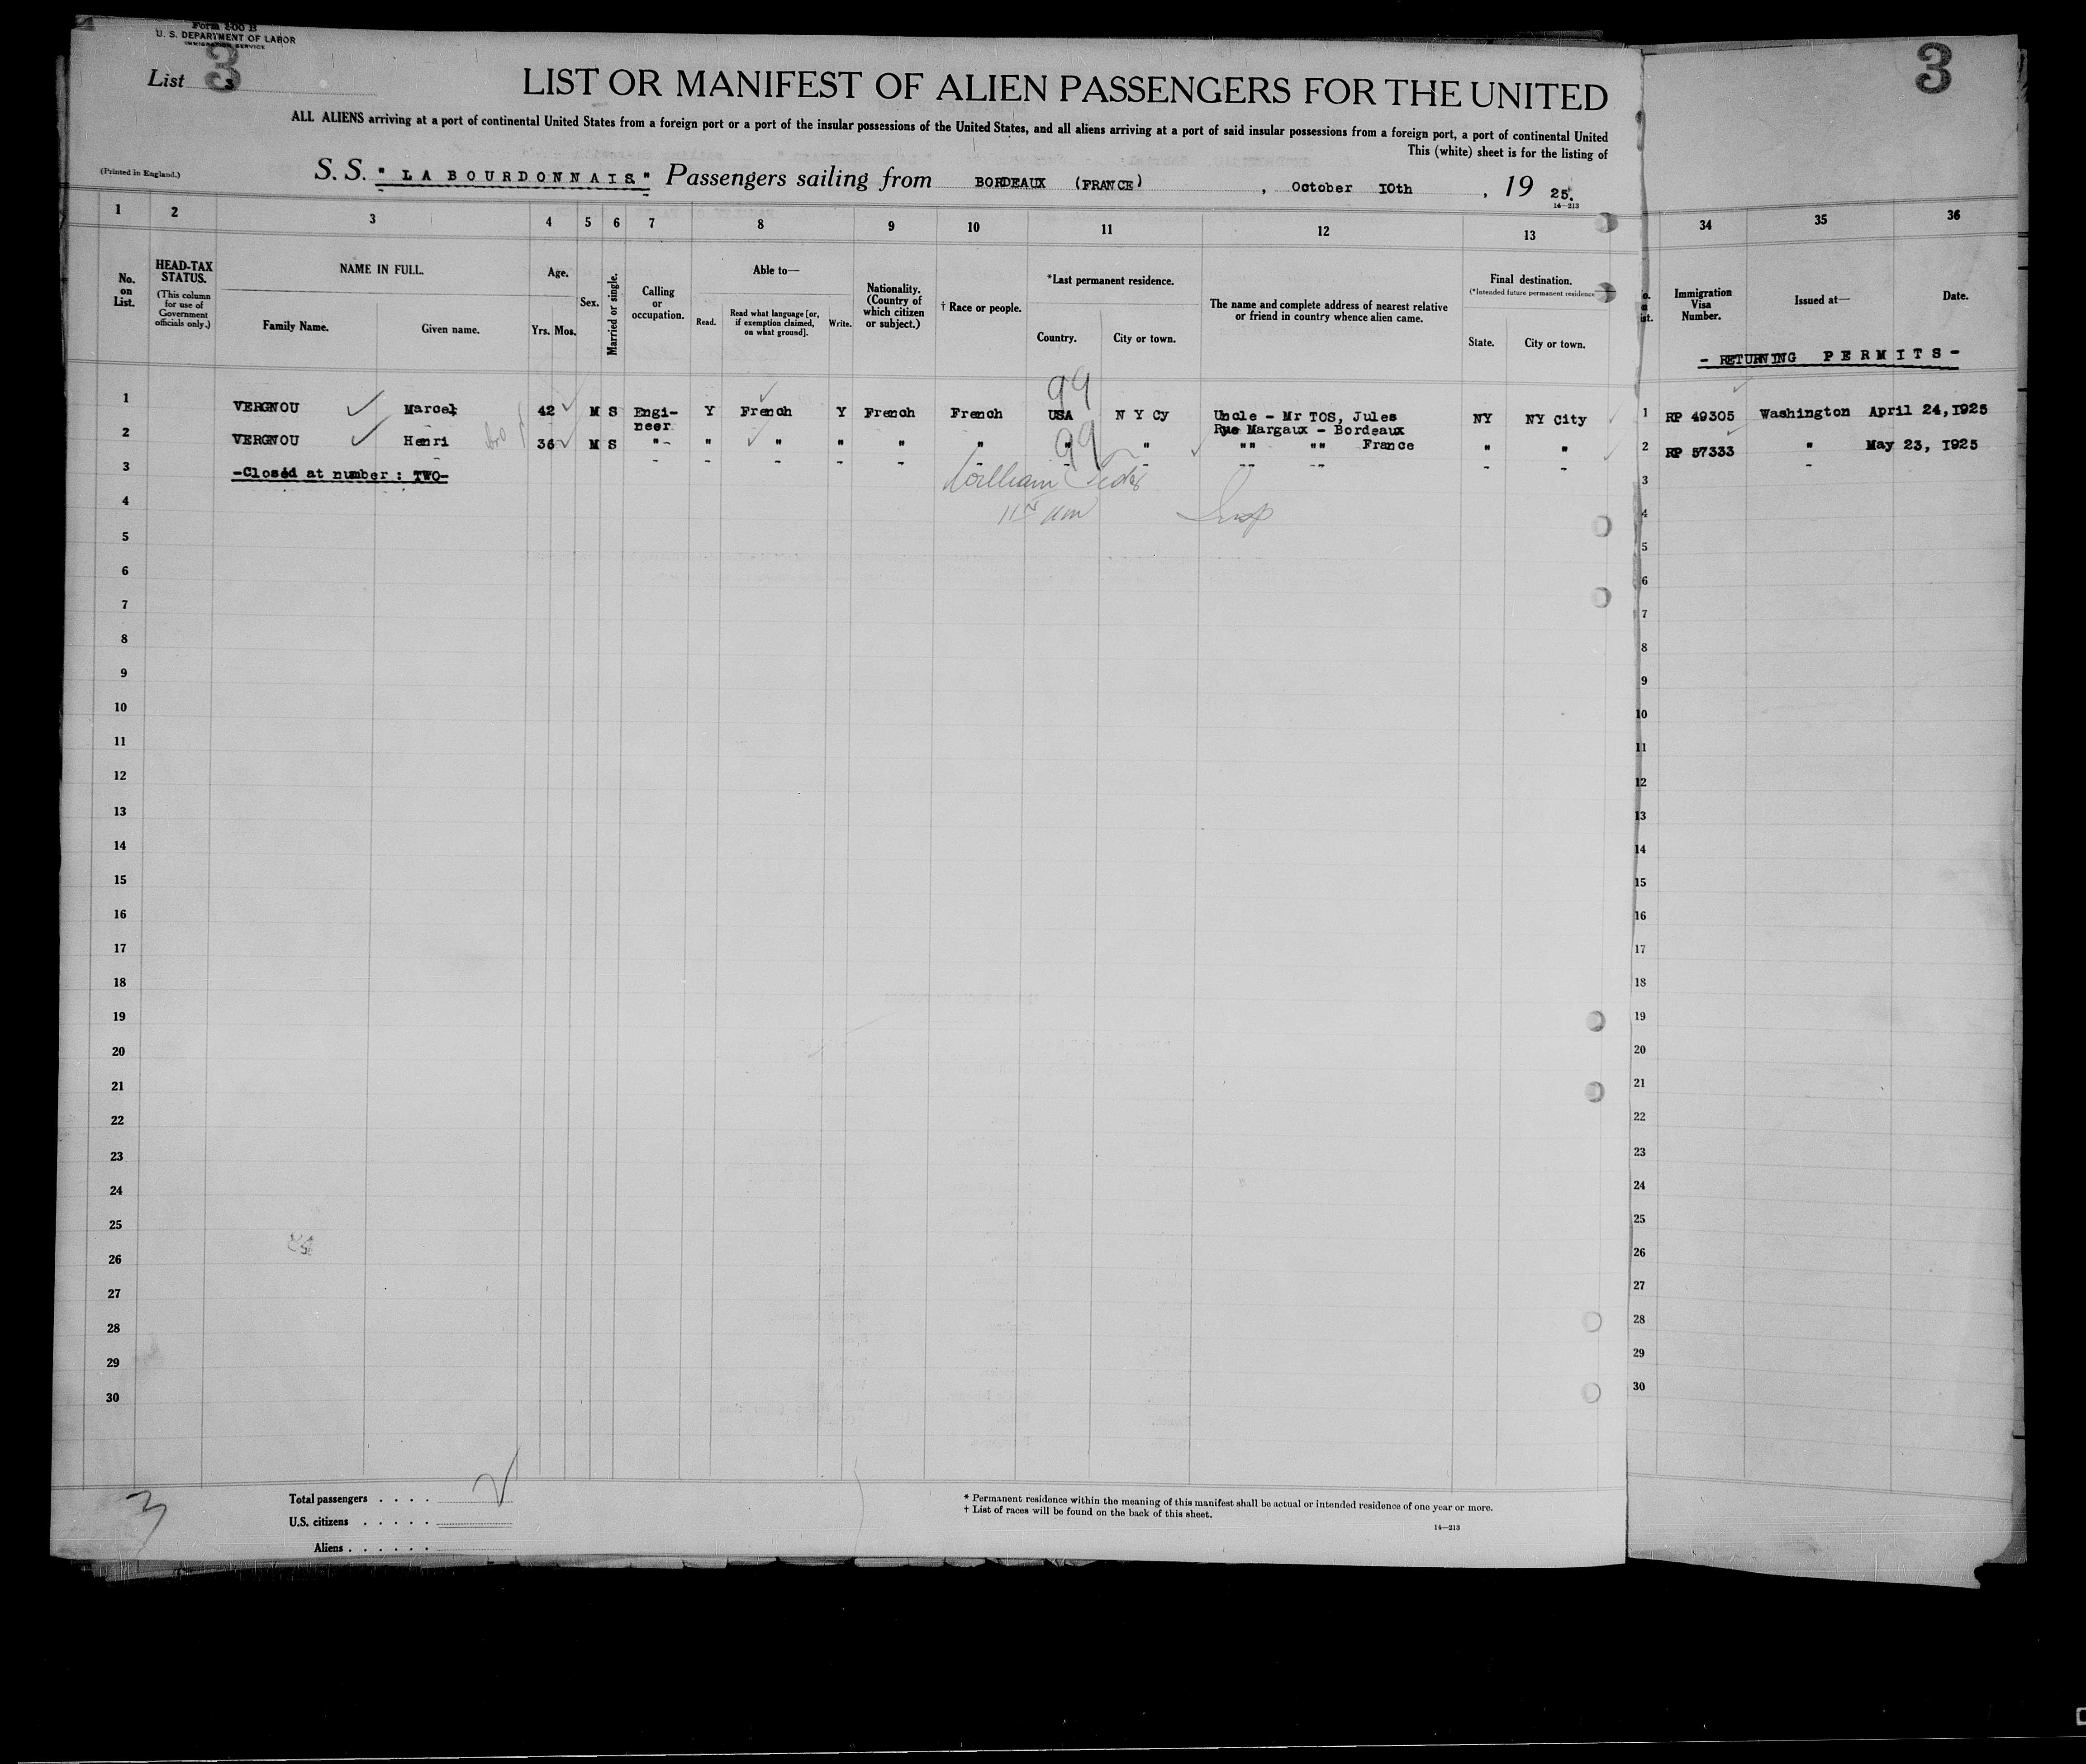 Form 500 B
U. S. DEPARTMENT OF LABOR
IMMIGRATION SERVICE
List 3
3
LIST OR MANIFEST OF ALIEN PASSENGERS FOR THE UNITED
ALL ALIENS arriving at a port of continental United States from a foreign port or a port of the insular possessions of the United States, and all aliens arriving at a port of said insular possessions from a foreign port, a port of continental United
This (white) sheet is for the listing of
(Printed in England.)
S. S. "LA BOURDONNAIS" Passengers sailing from BORDEAUX (FRANCE), October 10th, 19 25.
14—213
1 2 3 4 5 6 7 8 9 10 11 12 13 34 35 36
No. on List.
HEAD-TAX STATUS.
(This column for use of Government officials only.)
NAME IN FULL.
Family Name. Given name.
Age.
Yrs. Mos.
Sex.
Married or single.
Calling or occupation.
Able to—
Read.
Read what language [or, if exemption claimed, on what ground].
Write.
Nationality. (Country of which citizen or subject.)
† Race or people.
*Last permanent residence.
Country. City or town.
The name and complete address of nearest relative or friend in country whence alien came.
Final destination.
(*Intended future permanent residence
State. City or town.
Immigration Visa Number.
Issued at—
Date.
- RETURNING PERMITS -
99
1 VERGNOU Marcel 42 M S Engi- Y French Y French French USA N Y Cy Uncle - Mr TOS, Jules NY NY City 1 RP 49305 Washington April 24, 1925
neer Rue Margaux - Bordeaux
2 VERGNOU Henri 36 M S "- " " " " " " " "" "" France " " 2 RP 57333 " May 23, 1925
99
3 -Closed at number : TWO- - - - - - - - - -- -- - - 3 -
William
4 4
Insp
5 5
6 6
7 7
8 8
9 9
10 10
11 11
12 12
13 13
14 14
15 15
16 16
17 17
18 18
19 19
20 20
21 21
22 22
23 23
24 24
25 25
26 26
27 27
28 28
29 29
30 30
3
Total passengers . . . .
U.S. citizens . . . . .
Aliens . . . . . .
* Permanent residence within the meaning of this manifest shall be actual or intended residence of one year or more.
† List of races will be found on the back of this sheet.
14—213